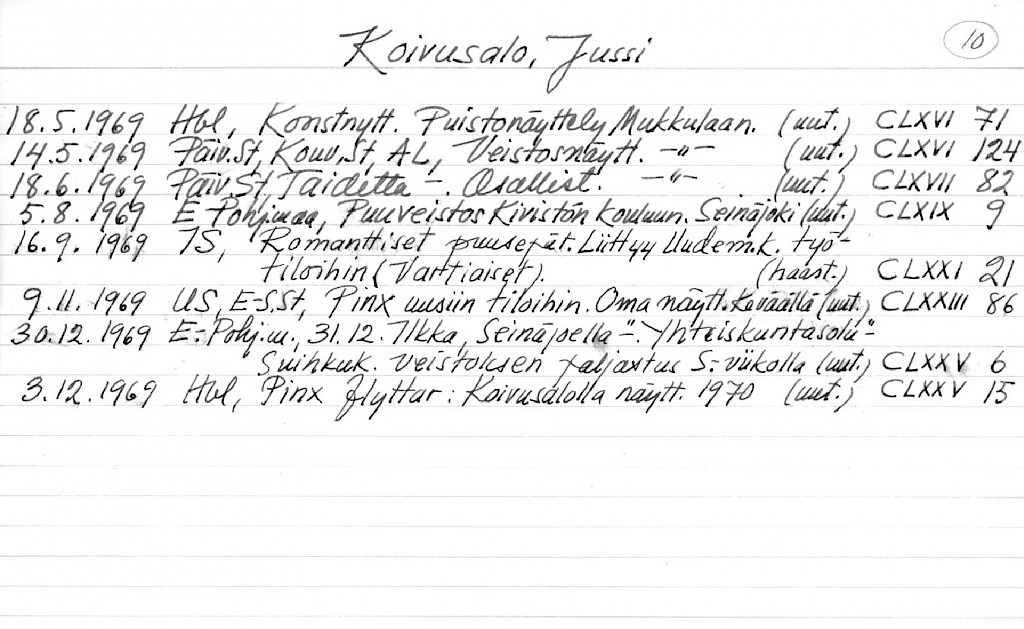 Koivusalo, Jussi
10
18.5.1969 Hbl, Konstnytt. Puistonäyttely Mukkulaan. (uut.) CLXVI 71
14.5.1969 Päiv.St, Kouv.St, AL, Veistosnäytt. -"- (uut.) CLXVI 124
18.6.1969 Päiv.St, Taidetta -. Osallist. -"- (uut.) CLXVII 82
5.8.1969 E-Pohjmaa, Puuveistos Kivistön kouluun. Seinäjoki (uut.) CLXIX 9
16.9.1969 IS, Romanttiset puusepät. Liittyy Uudem.k. työ-
tiloihin (Varttiaiset). (haast.) CLXXI 21
9.11.1969 US, E-S.St, Pinx uusiin tiloihin. Oma näytt. keväällä (uut.) CLXXIII 86
30.12.1969 E-Pohj.m., 31.12. Ilkka, Seinäjoella -"- "Yhteiskuntasolu"-
Suihkuk. veistoksen paljastus S-viikolla (uut.) CLXXV 6
3.12.1969 Hbl, Pinx flyttar: Koivusalolla näytt. 1970 (uut.) CLXXV 15